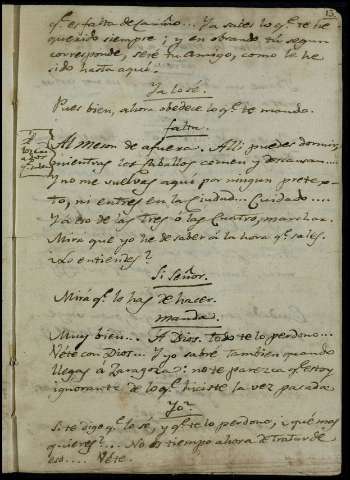 13.
q.e es falta de cariño... Ya sabes lo q.e te he
querido siempre; y en obrando tu segun
corresponde, seré tu amigo, como lo he
sido hasta aqui.
Ya lo sé.
Pues bien, ahora obedece lo q.e te mando.
falta.
Al meson de afuera. Alli puedes dormir,
mientras los caballos comen y descansan....
Y no me vuelvas aqui por ningun pretex-
to, ni entres en la Ciudad... Cuidado....
Y á eso de las tres ó las cuatro, marchar.
Mira que yo he de saber á la hora q.e sales.
Lo entiendes?
Si Señor.
Mirá q.e lo has de hacer.
manda.
Muy bien... A Dios. todo te lo perdono...
Véte con Dios... Y yo sabré tambien quando
llegas á Zaragoza: no te parezca q.e estoy
ignorante de lo q.e hiciste la vez pasada.
Yo?
Si te digo q.e lo sé, y q.e te lo perdono, ¿qué mas
quieres?... No es tiempo ahora de tratar de
eso.... Véte.